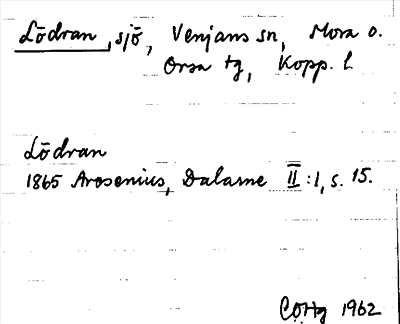 Lōdran, sjö, Venjans sn, Mora o.
Orsa tg, Kopp. l.
Lōdran
1865 Arosenius, Dalarne II:1, s. 15.
COHg 1962